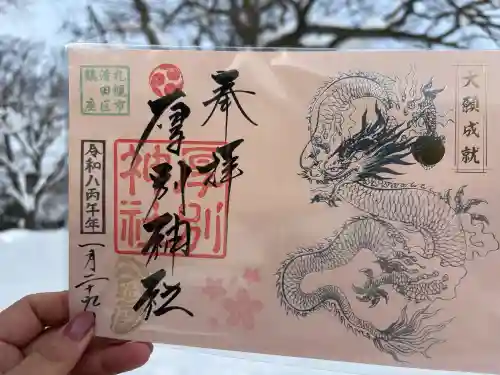 大願成就
奉拝
厚別神社
厚別神社
札幌市
清田区
鎮座
令和八丙午年
一月二十九